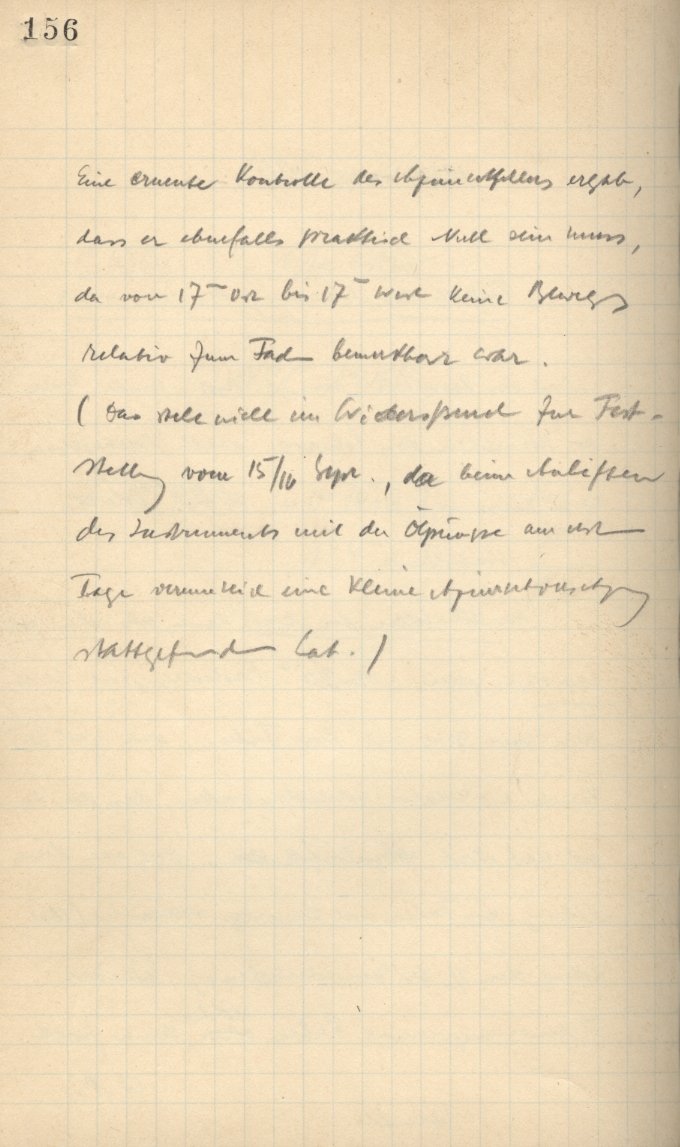 156
Eine erneute Kontrolle des Azimutfehlers ergab,
dass er ebenfalls praktisch Null sein muss,
da von 17 Ost bis 17 West keine Bewegg
relativ zum Faden bemerkbar war.
( Das steht nicht im Widerspruch zur Fest-
stellung vom 15/16 Sept., da beim
des Instruments mit der am
Tage eine kleine
stattgefunden hat. )